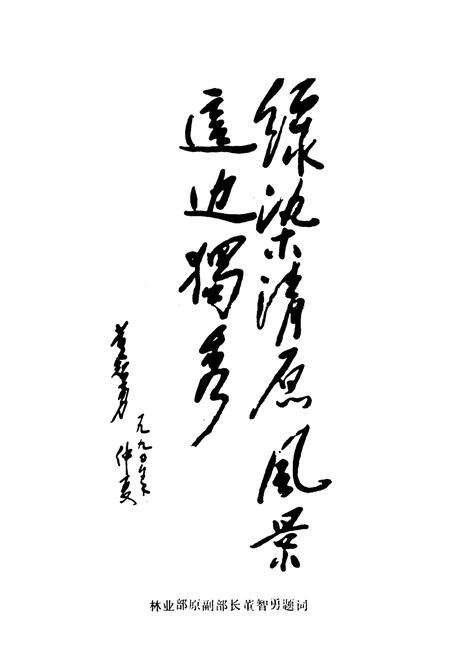 绿染清原风景
這边獨秀
董智勇
一九九〇年末
仲夏
林业部原副部长董智勇题词